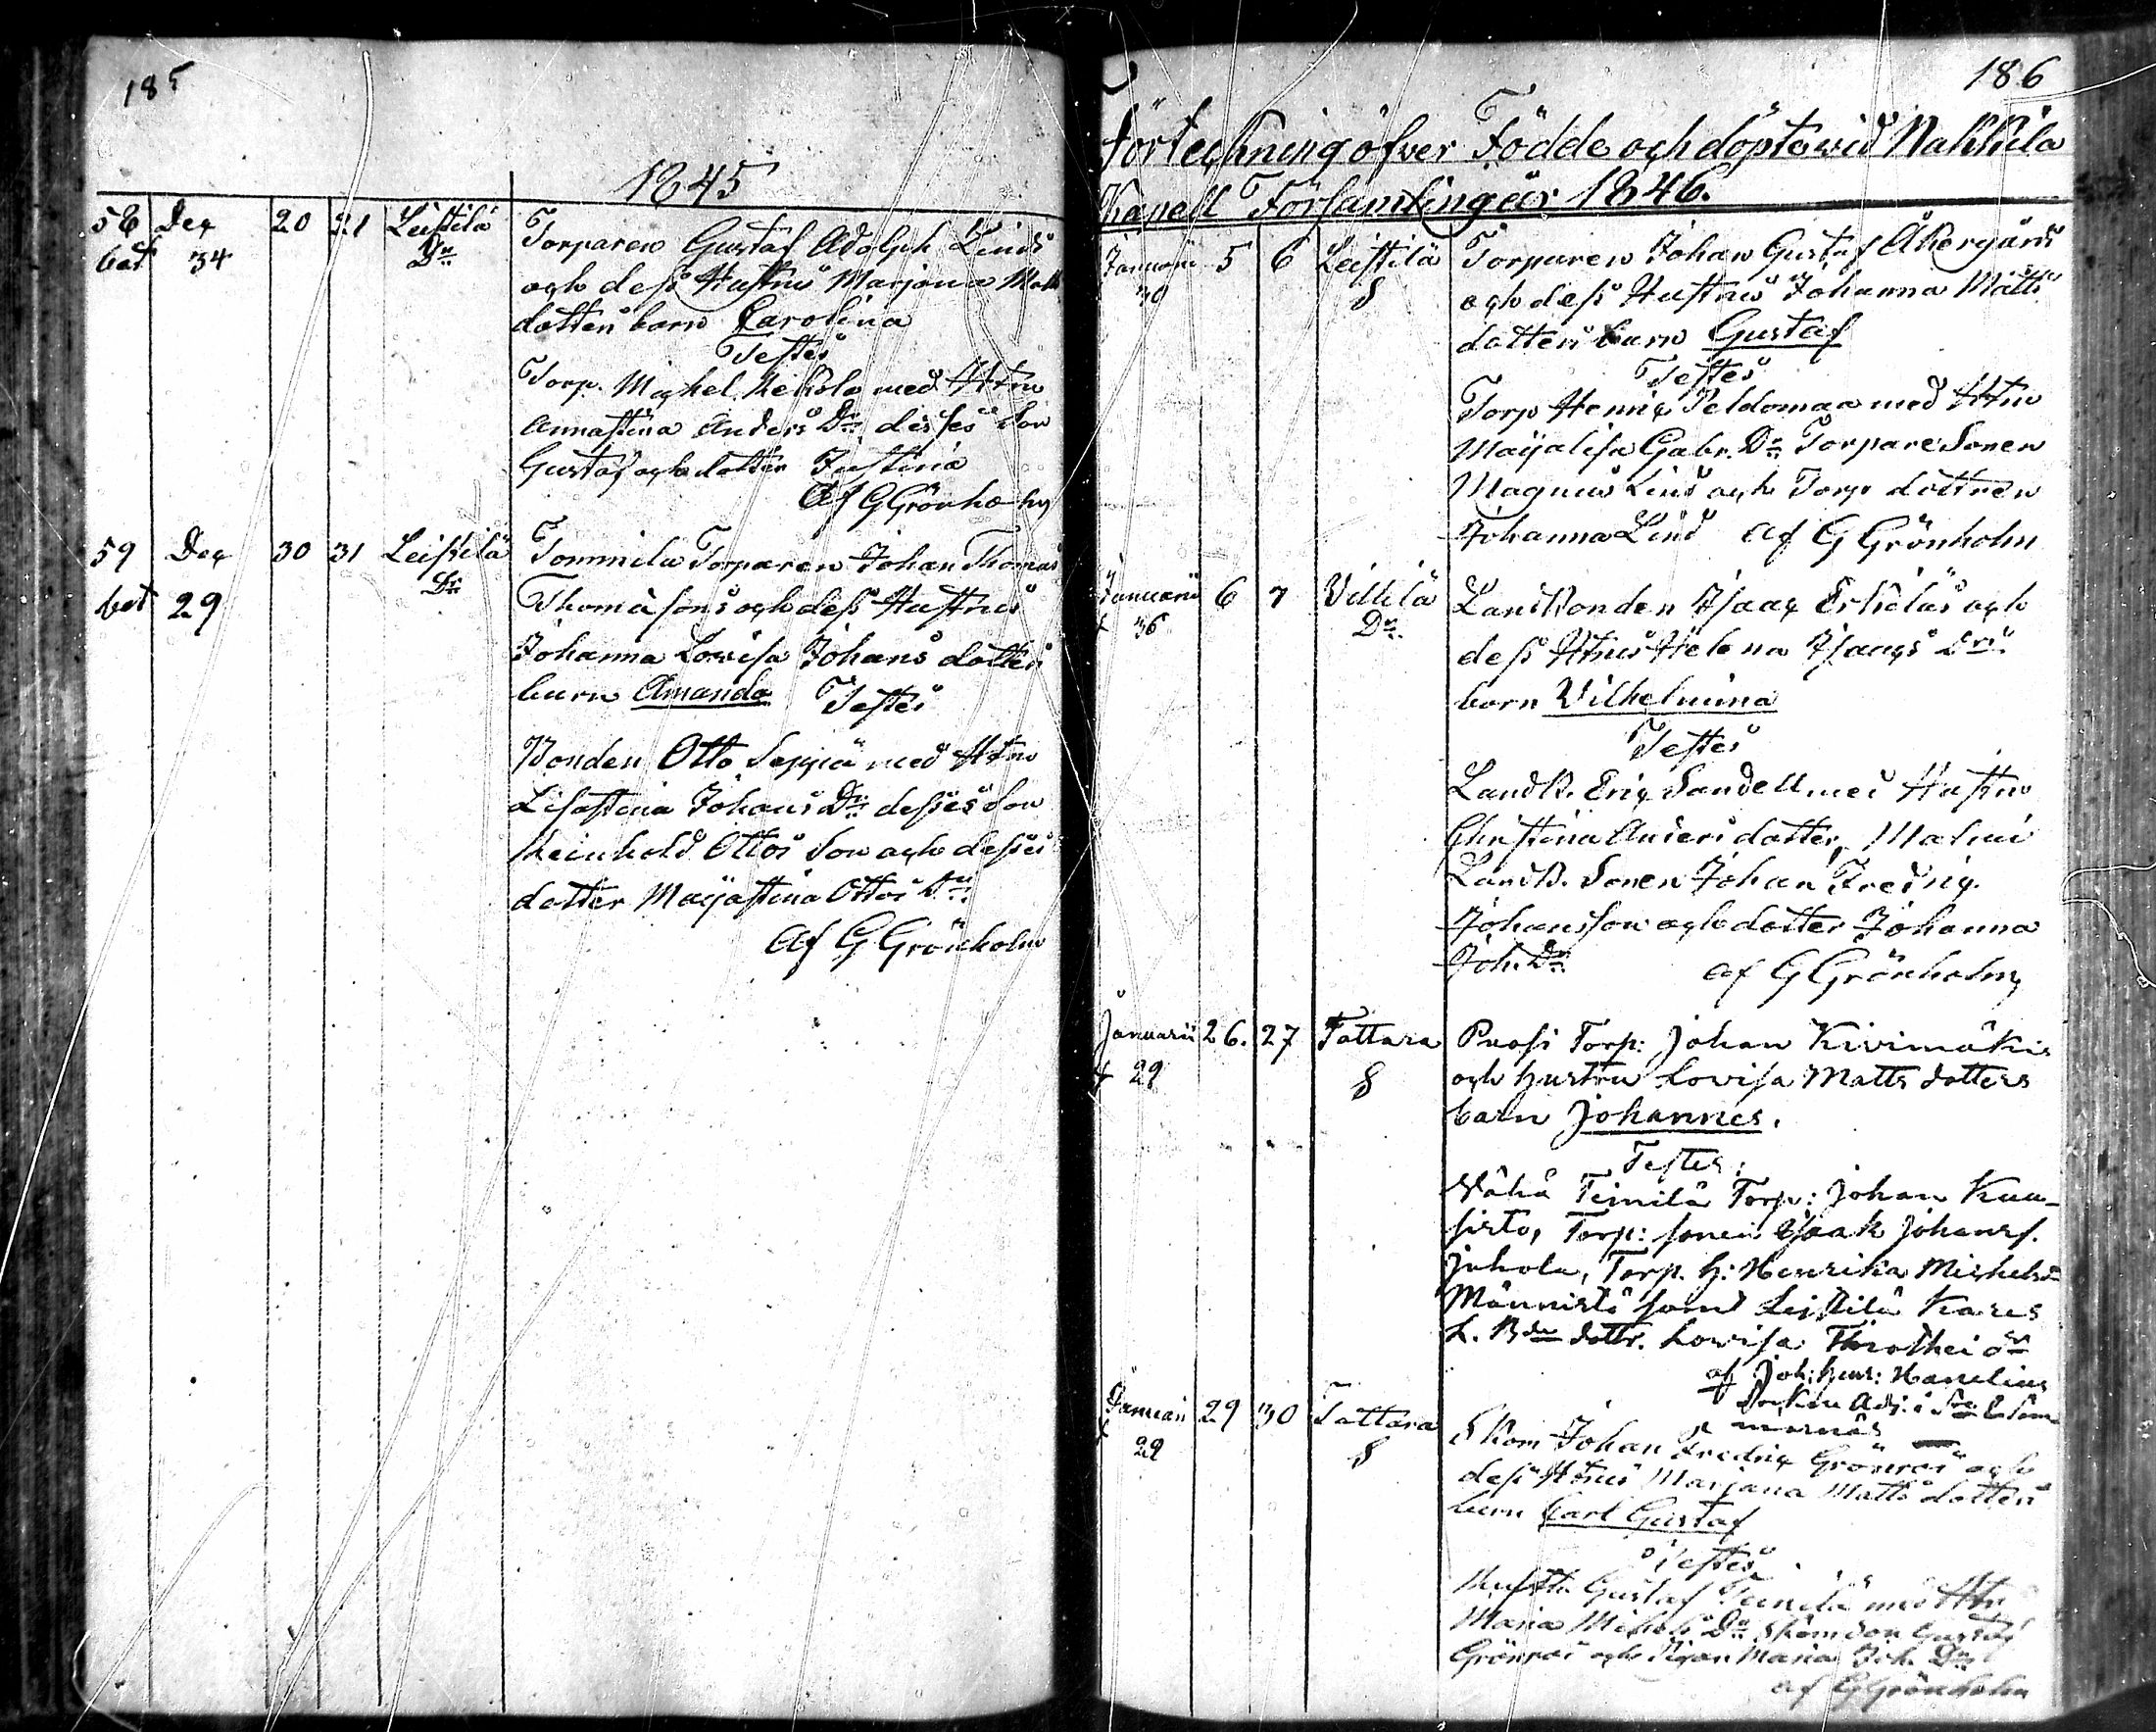 185
1845
58 Dec 20 21 Leistilä Torparen Gustaf Adolph Linds
bat 34 Dr och dess Hustrus Marjana Matts
dotters barn Carolina
Testes
Torp. Michel Heikola med Htru
Annastina Anders Dr desses Son
Gustaf och dotter Justina
Af G Grönholm
59 Dec 30 31 Leistilä Tommila Torparen Johan Thomas
bat 29 Dr Thomæsons och dess Hustrus
Johanna Lovisa Johans dotters
barn Amanda Testes
Bonden Otto Seppä med Htru
Lisastina Johans Dr desses Son
Reinhold Ottos Son och desses
dotter Majastina Ottos Dr
Af G Grönholm
186
Förteckning öfver Födde och döpte wid Nakkila
Kapell Församling år 1846.
Januari 5 6 Leistilä Torparen Johan Gustaf Åkergårds
30 S och dess Hustrus Johanna Matts
dotters barn Gustaf
Testes
Torp Henric Peldomaa med Htru
Majalisa Gabr. Dr Torpare Sonen
Magnus Lind och Torp dottren
Johanna Lind af G Grönholm
Januarii 6 7 Villilä Landbonden Isaac Erkiläs och
x 36 Dr dess Htrus Helena Isaacs Drs
barn Vilhelmina
Testes
Landb. Eric Sandell med Hustru
Christina Anders dotter, Malmi
Landb. Sonen Johan Fredric
Johansson och dotter Johanna
Joh. Dr af G Grönholm
Januarii 26. 27 Tattara Torp: Johan Kivimäkis
x 29 S och hustru Lovisa Matts dotters
barn Johannes.
Testes,
Vähä Teinilä Torp: Johan Kuu-
sisto, Torp: sonen Isaak Johanss.
Juhola, Torp. h: Henrika Michelsdr
Männistö samt Leistilä Kares
L. Bde dottr. Lovisa Thimothei dr
af Joh: Henr: Hanelius
Socken Adj: i
Januari 29 30 Tattara Skom Johan Fredric Grönroos och
x 29 S dess Htrus Marjana Matts dotters
barn Carl Gustaf
Testes
Gustaf Teinilä med Htru
Maria Michels Dr Skom Son Gustaf
Grönroos och Pigan Maria Joh. Dr
af G Grönholm